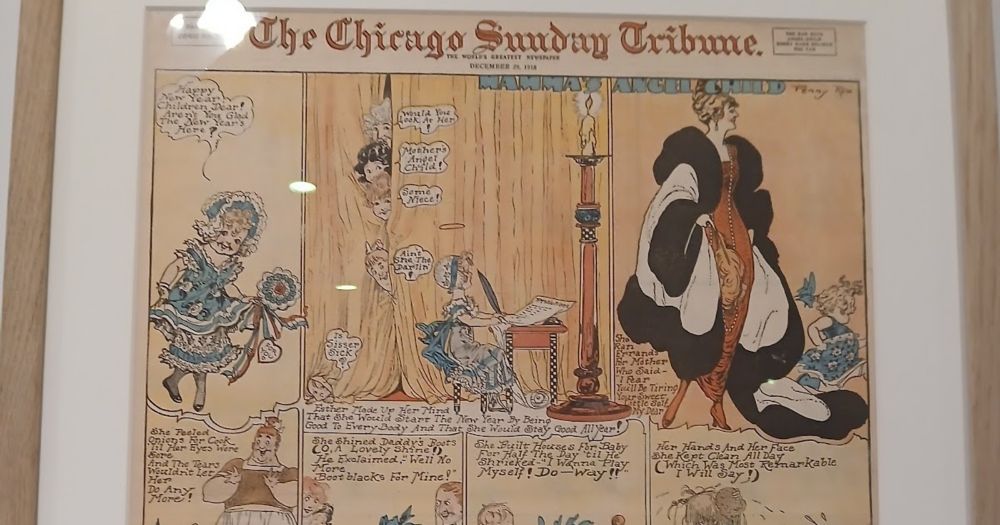 The Chicago Sunday Tribune.
THE WORLD'S GREATEST NEWSPAPER
DECEMBER 29, 1918
MAMMA'S ANGEL CHILD
Penny Ross
Happy
New Year
Children Dear!
Aren't You Glad
The New Year's
Here?
Would You
Look At Her
!
Mother's
Angel
Child!
Some
Niece!
Aint
She The
Darlin'
!
Is
Sisser
Sick
?
Esther Made Up Her Mind
That She Would Start The New Year By Being
Good To Every-Body And That She Would Stay Good All Year!
She
Ran
Errands
For Mother
Who Said-
I Fear
You'll Be Tiring
Your Sweet
Little Self
My Dear
She Peeled
Onions For Cook
'til Her Eyes Were
Sore
And The Tears
Wouldn't Let
Her
Do Any
More!
She Shined Daddy's Boots
(O, A Lovely Shine!)
He Exclaimed, "Well No
More
Boot blacks For Mine!"
She Built Houses For Baby
For Half The Day 'til He
Shrieked "I Wanna Play
Myself! Do-Way!!"
Her Hands And Her Face
She Kept Clean All Day
(Which Was Most Remarkable
I Will Say!)